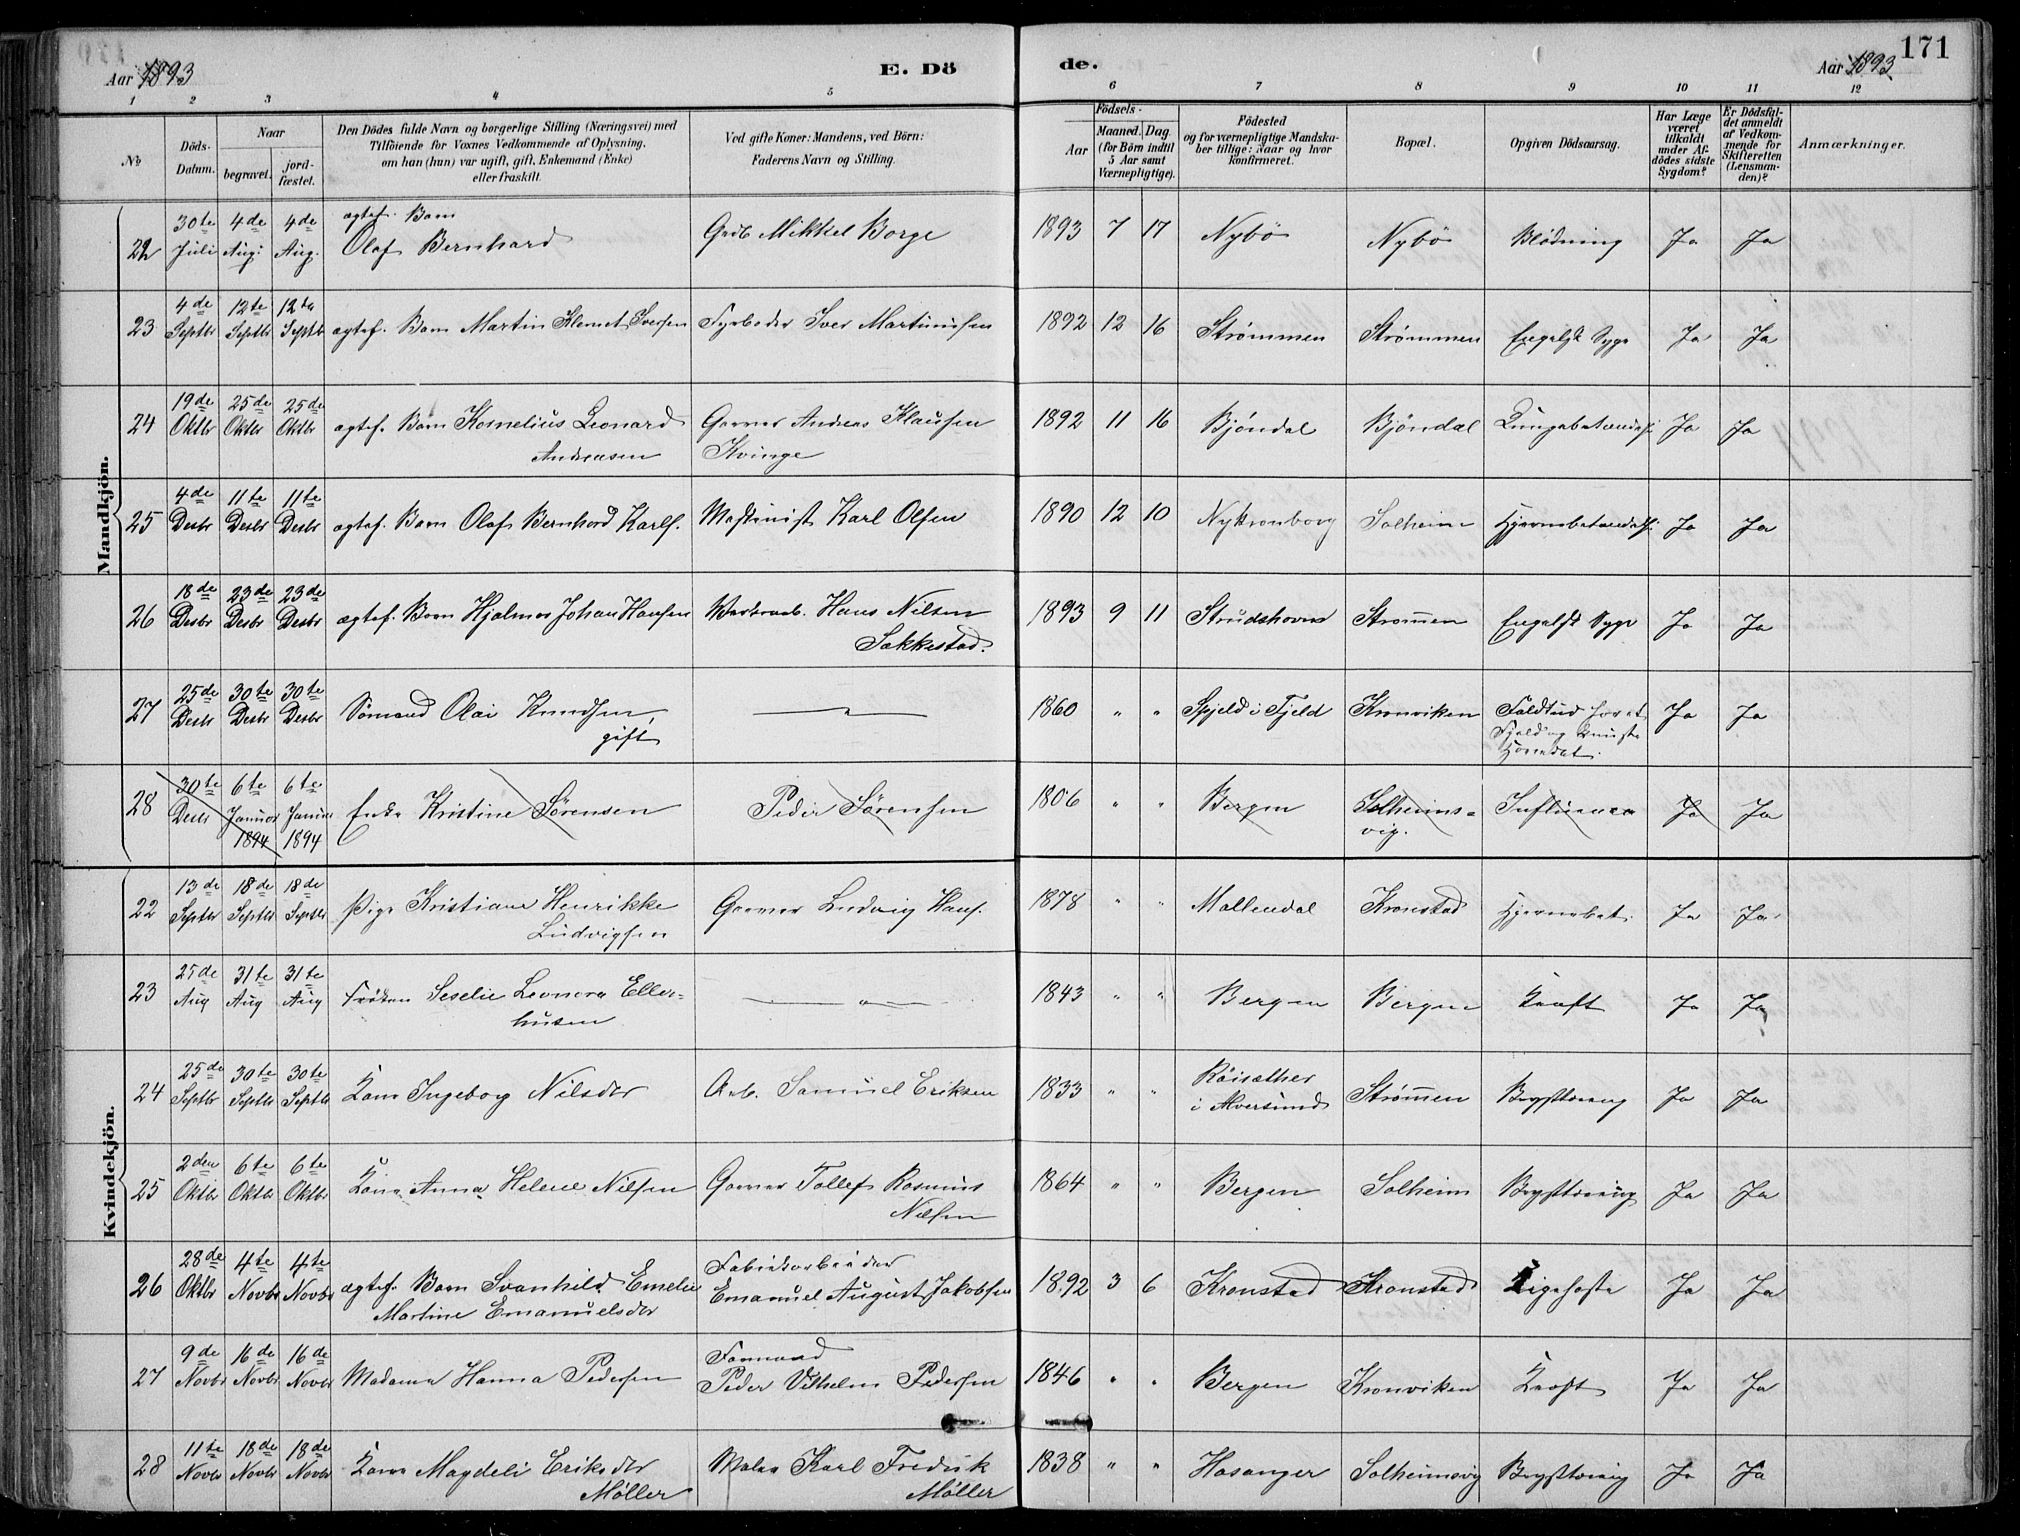 Aar 1893 E. Dö de. Aar 1893 171
1 2 3 4 5 6 7 8 9 10 11 12
No Döds-Datum. Naar begravet. jordfæstet. Den Dödes fulde Navn og borgerlige Stilling (Næringsvei) med Tilföiende for Voxnes Vedkommende af Oplysning, om han (hun) var ugift, gift, Enkemand (Enke) eller fraskilt. Ved gifte Koner: Mandens, ved Börn: Faderens Navn og Stilling. Födsels- Aar Maaned. Dag. (for Börn indtil 5 Aar samt Værnepligtige). Födested og for værnepligtige Mandskaber tillige: Naar og hvor konfirmeret. Bopæl. Opgiven Dödsaarsag. Har Læge været tilkaldt under Afdödes sidste Sygdom? Er Dödsfaldet anmeldt af Vedkommende for Skifteretten (Lensmanden)? Anmærkninger.
Mandkjön.
22 30te Juli 4de Aug. 4de Aug. ægtef. Barn Olaf Bernhard Grdb Mikkel Borge 1893 7 17 Nybö Nybö Blödning Ja Ja
23 4de Septbr 12te Septbr 12te Septbr ægtef. Barn Martin Klemet Iversen Fyrböder Iver Martinusen 1892 12 16 Strømmen Strømmen Engelsk Syge Ja Ja
24 19de Oktbr 25de Oktbr 25de Oktbr ægtef. Barn Kornelius Leonard Andreasen Garver Andreas Klausen Kvinge 1892 11 16 Bjöndal Bjöndal Lungebetændelse Ja Ja
25 4de Desbr 11te Desbr 11te Desbr ægtef. Barn Olaf Bernhard Karls. Maskinist Karl Olsen 1890 12 10 Nykronborg Solheim Hjernebetændels. Ja Ja
26 18de Desbr 23de Desbr 23de Desbr ægtef. Barn Hjalmar Johan Hansen Værksarb. Hans Nilsen Sakkestad. 1893 9 11 Strudshavn Strømmen Engelsk Syge Ja Ja
27 25de Desbr 30te Desbr 30te Desbr Sömand Olai Knudsen, gift 1860 " " Spjeld i Fjeld Kronviken Faldt ud for et Fjeld og knuste Hovedet. Ja Ja
28 30te Desbr 6te Januar 1894 6te Januar 1894 Enke Kristine Sørensen Peder Sørensen 1806 " " Bergen Solheimsvig. Influenca Ja Ja
Kvindekjön.
22 13de Septbr 18de Septbr 18de Septbr Pige Kristiane Henrikke Ludvigsen Garver Ludvig Hans. 1878 " " Mollendal Kronstad Hjernebet. Ja Ja
23 25de Aug 31te Aug 31te Aug Fröken Seselie Leonora Ellerhusen 1843 " " Bergen Bergen Kræft Ja Ja
24 25de Septbr 30te Septbr 30te Septbr Kone Ingeborg Nilsdtr Arb. Samuel Eriksen 1833 " " Röisæther i Alversund Strømmen Brysttæring Ja Ja
25 2den Oktbr 6te Oktbr 6te Oktbr Kone Anna Helene Nilsen Garver Tollef Rasmus Nilsen 1864 " " Bergen Solheim Brysttæring Ja Ja
26 28de Oktbr 4te Novbr 4te Novbr ægtef. Barn Svanhild Emelie Martine Emanuelsdtr Fabrikarbeider Emanuel August Jakobsen 1892 3 6 Kronstad Kronstad Kighoste Ja Ja
27 9de Novbr 16de Novbr 16de Novbr Madame Hanna Pedersen Formand Peder Vilhelm Pedersen 1846 " " Bergen Kronviken Kræft Ja Ja
28 11te Novbr 18de Novbr 18de Novbr Kone Magdeli Eriksdtr Møller Maler Karl Fredrik Møller 1838 " " Hosanger Solheimsvig Brysttæring Ja Ja